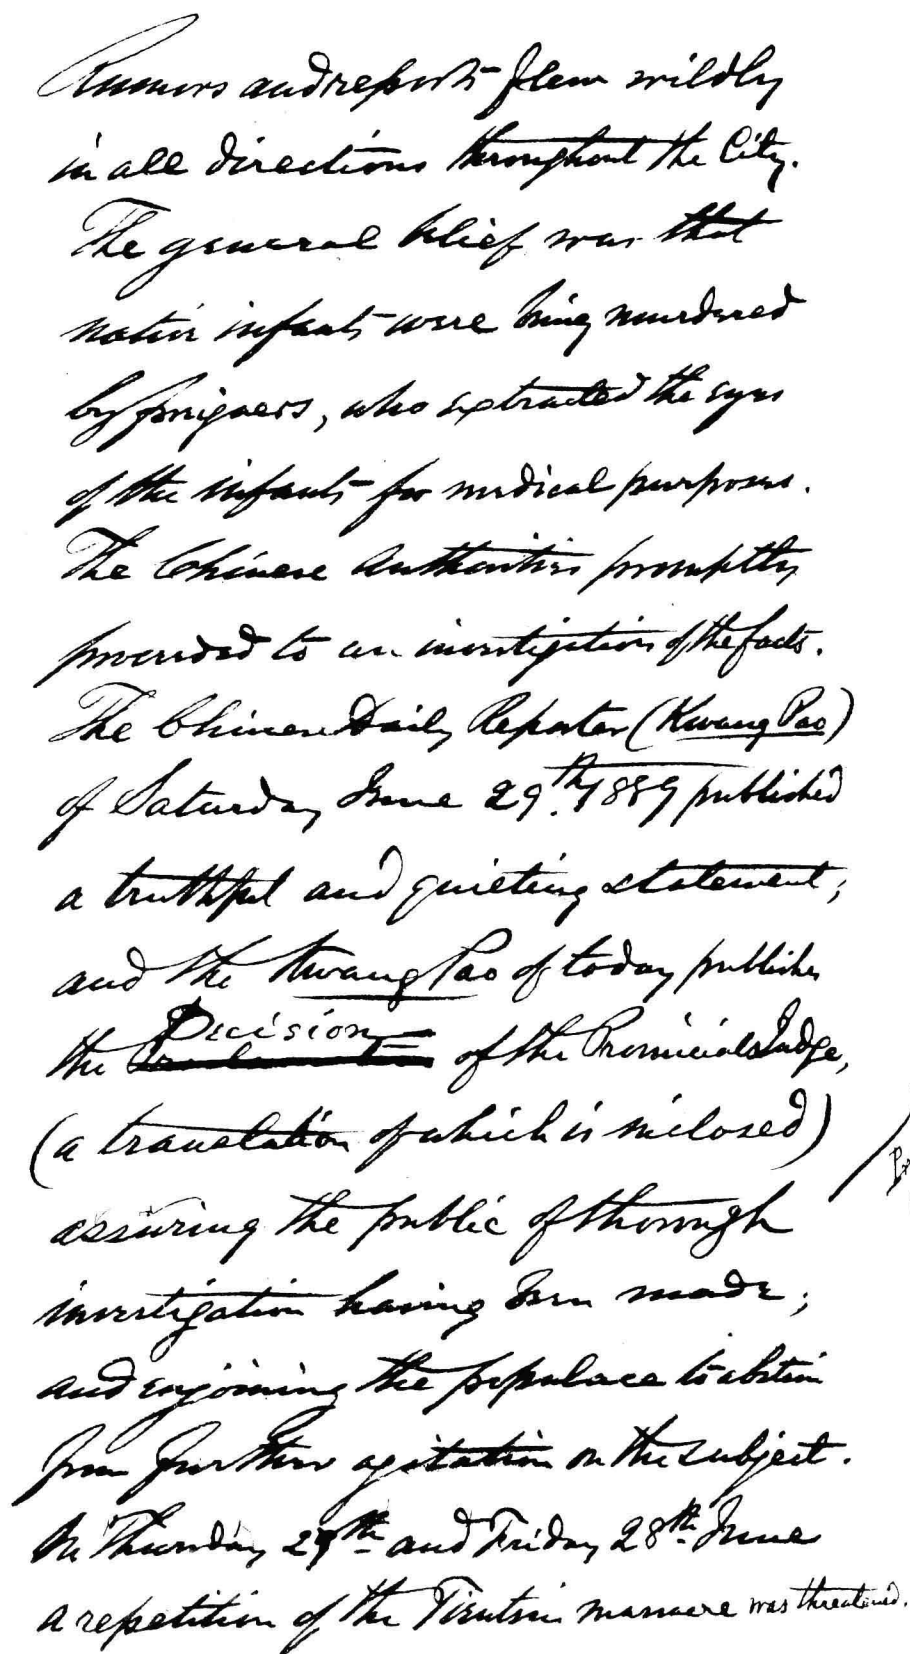 Rumors and reports flew wildly
in all directions throughout the City.
The general belief was that
native infants were being murdered
by foreigners, who extracted the eyes
of the infants for medical purposes.
The Chinese Authorities promptly
proceeded to an investigation of the facts.
The Chinese Daily Reporter (Kwang Pao)
of Saturday June 29th. 1889 published
a truthful and quieting statement;
and the Kwang Pao of today publishes
Decision
the of the Provincial Judge,
(a translation of which is inclosed)
assuring the public of thorough
investigation having been made;
and enjoining the populace to abstain
from further agitation on the subject.
On Thursday 27th and Friday 28th June
a repetition of the Tientsin massacre was threatened.